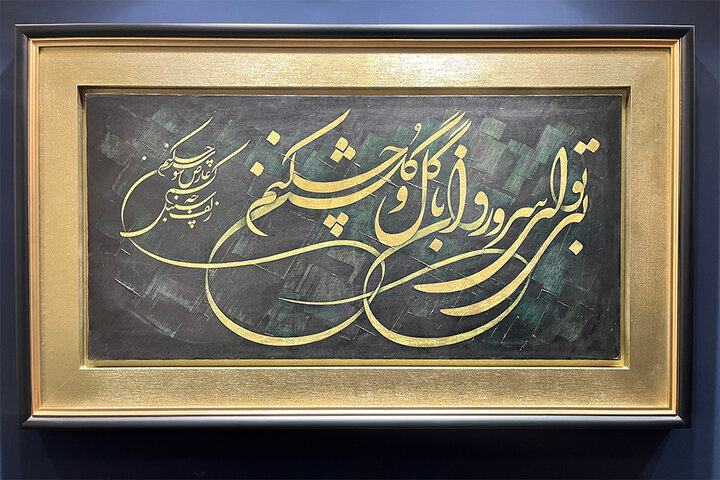 بی تو ای سرو روان با گل و گلشن چکنم
زلف سنبل چه کشم عارض سوسن چکنم